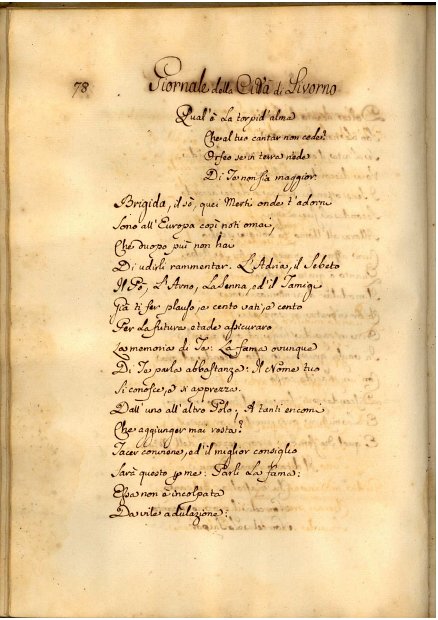 78 Giornale della Città di Livorno
Qual'è la torpid'alma
Che al tuo cantar non cede?
Orfeo se in terra riede
Di Te non fia maggior.
Brigida, il sò, quei Merti onde t'adorni
Sono all'Europa così noti omai,
Che duopo più non hai
Di udirli rammentar. L'Adria, il Sebeto
Il Pò, L'Arno, La Senna, ed il Tamigi
Già ti fer plauso, e cento vati, e cento
Per la futura etade assicuraro
La memoria di Te: La fama ovunque
Di Te parla abbastanza: Il Nome tuo
Si conosce, e si apprezza
Dall'uno all'altro Polo; A tanti encomi
Che aggiunger mai resta?
Tacer conviene, ed il miglior consiglio
Sarà questo p me: Parli La fama:
Essa non è incolpata
Da vile adulazione: